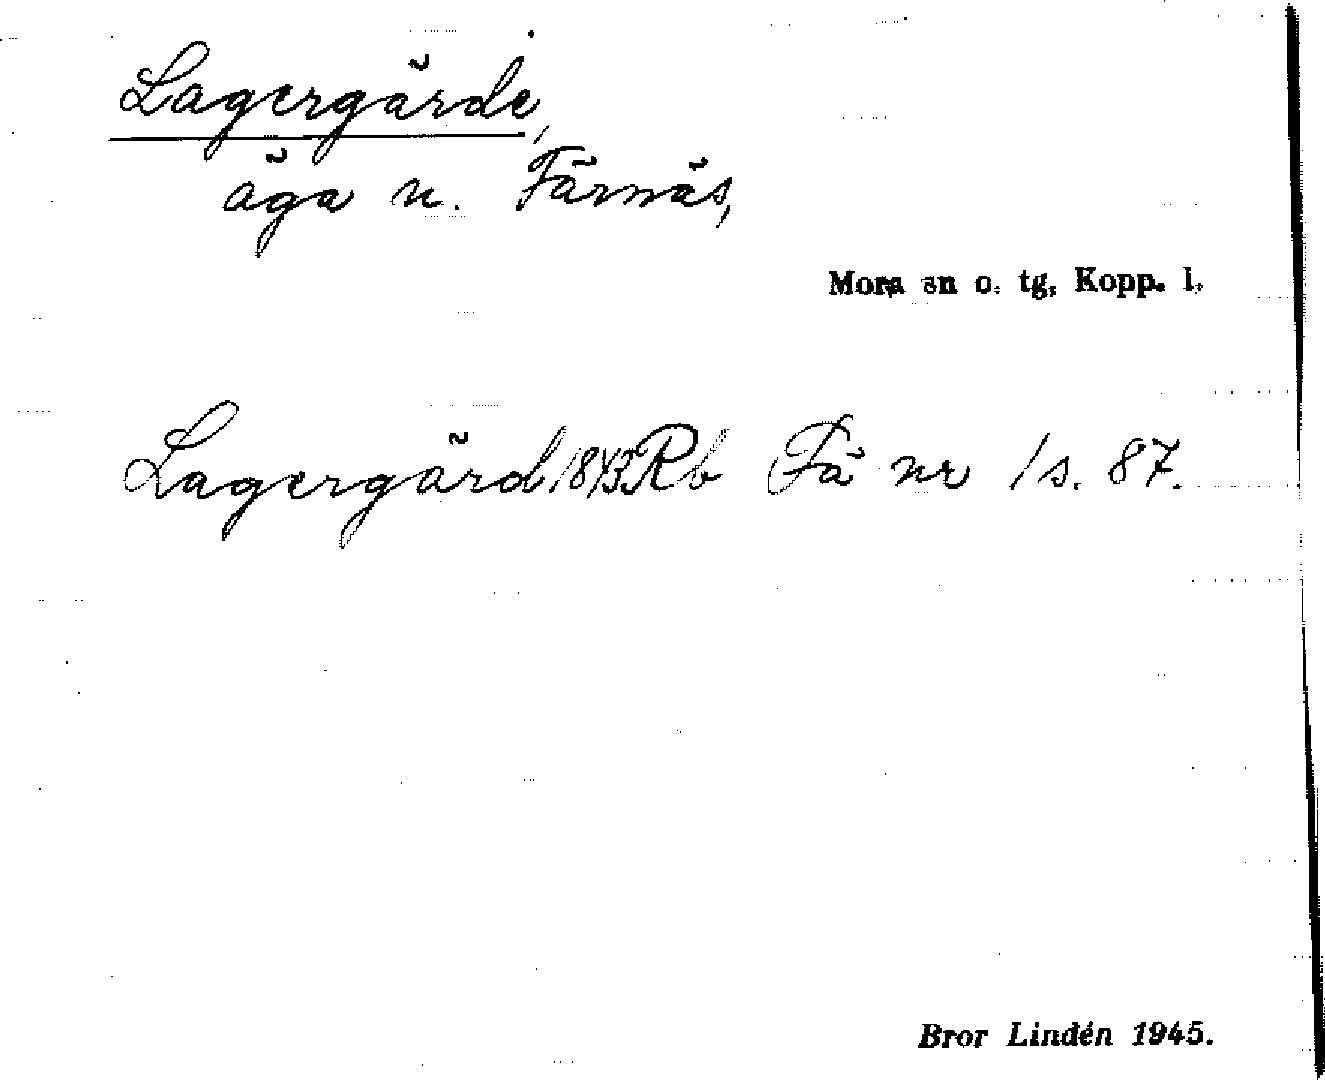 Lagergärde,
äga n. Färnäs,
Mora sn o. tg, Kopp. l.
Lagergärd 1843 Rb Fä nr 1 s. 87.
Bror Lindén 1945.